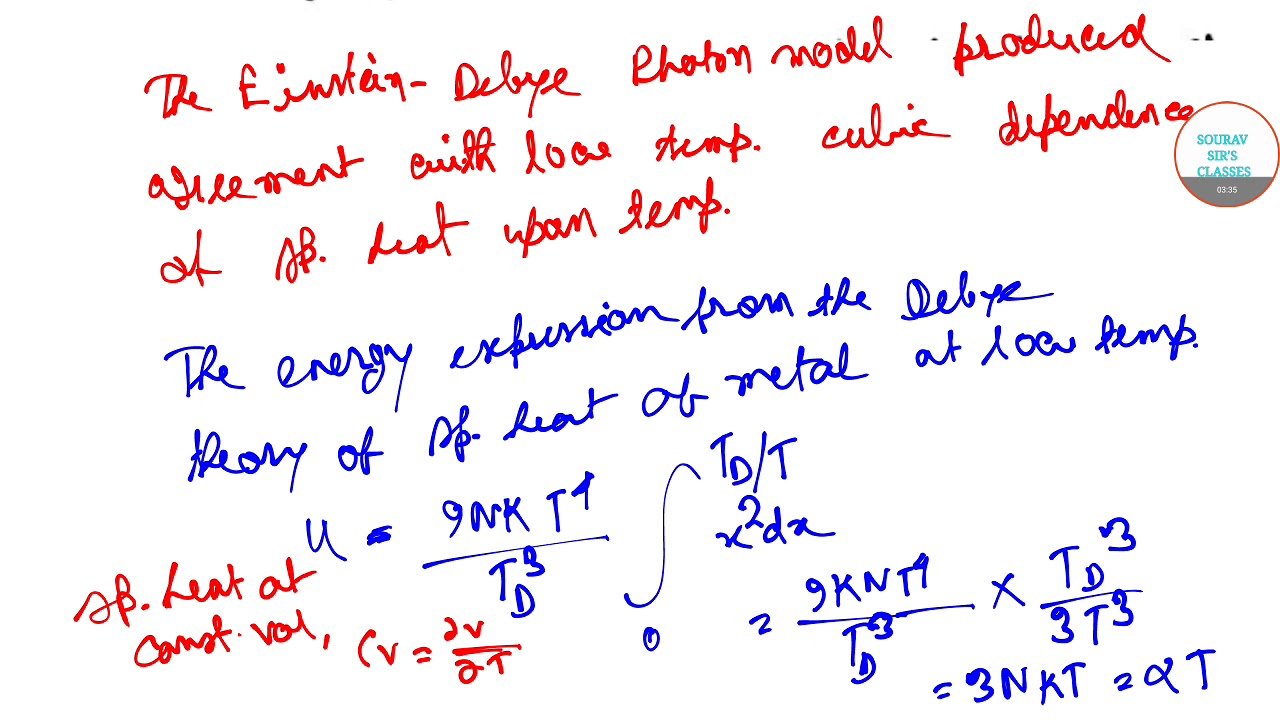 The Einstein-Debye Photon model produced
agreement with low temp. cubic dependence
of sp. heat upon temp.
SOURAV
SIR'S
CLASSES
03:35
The energy expression from the Debye
theory of sp. heat of metal at low temp.
U = 9NKT⁴/T_D³ ∫₀^{T_D/T} x²dx
= 9KNT⁴/T_D³ × T_D³/3T³
= 3NKT = αT
sp. heat at
const. vol, Cv = ∂v/∂T